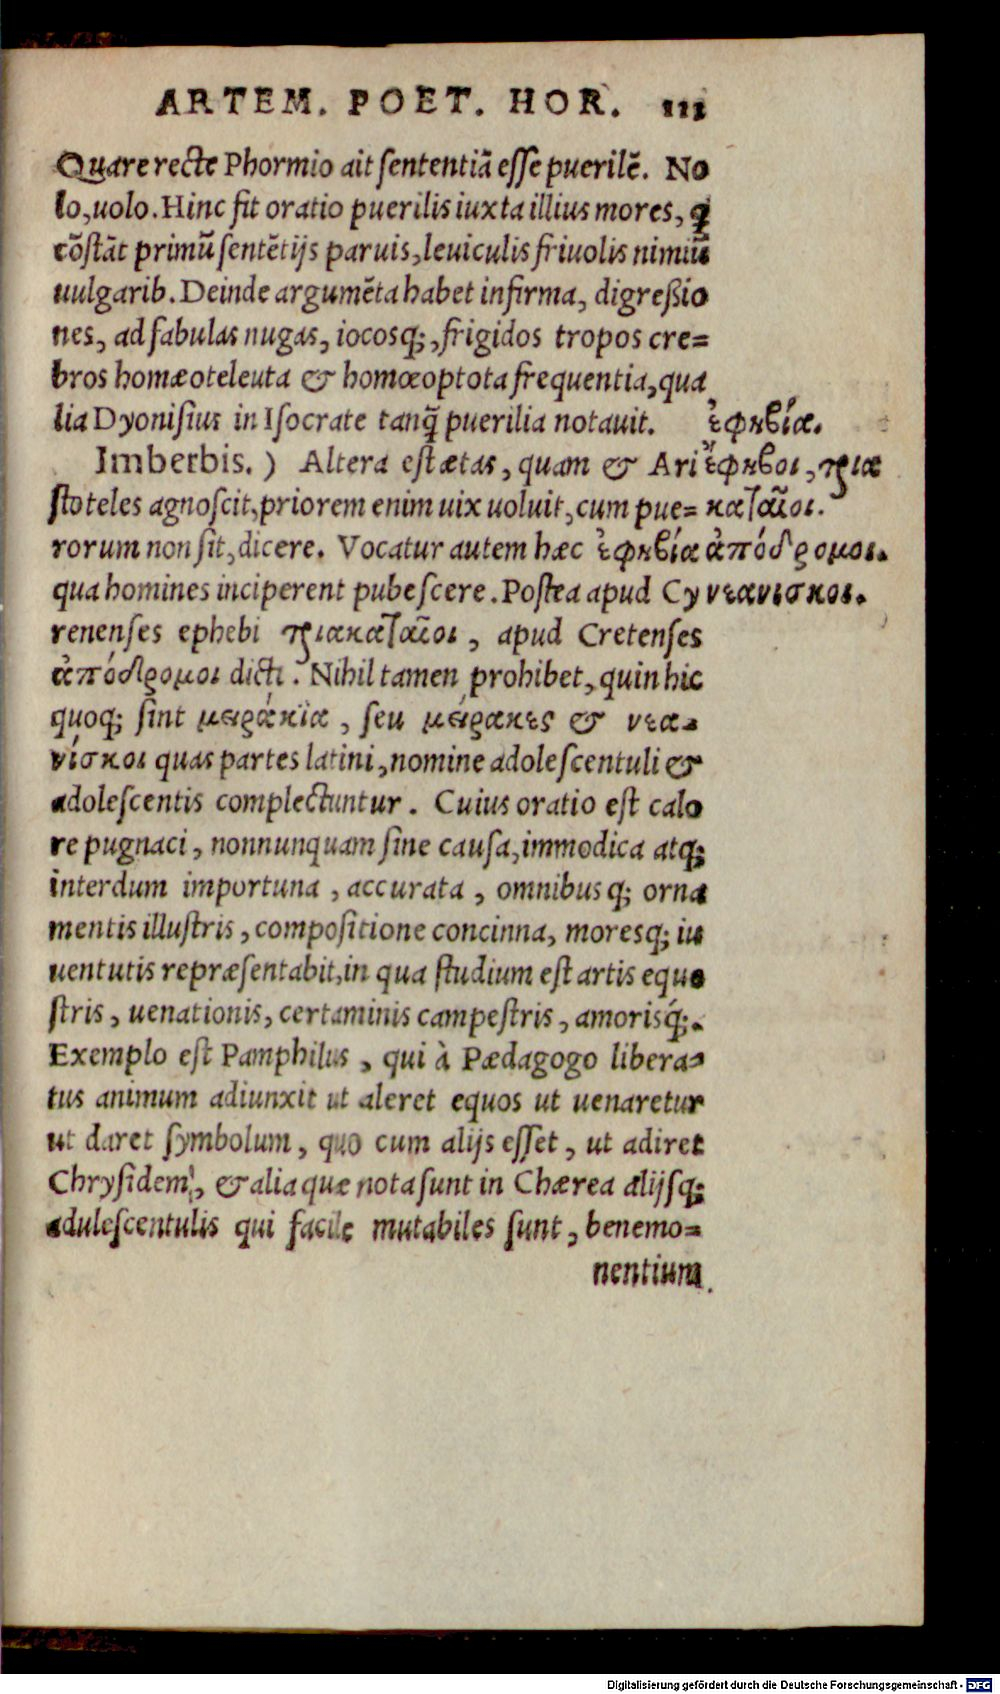 ARTEM. POET. HOR. 111
Quare recte Phormio ait ſententiã eſſe puerilẽ. No
lo, uolo. Hinc fit oratio puerilis iuxta illius mores, q̃
cõſtãt primũ ſentẽtijs paruis, leuiculis friuolis nimiũ
uulgarib. Deinde argumẽta habet infirma, digreßio
nes, ad fabulas nugas, iocosq́;, frigidos tropos cre=
bros homæoteleuta & homœoptota frequentia, qua
lia Dyoniſius in Iſocrate tanq̃ puerilia notauit. ἐφηβία.
Imberbis.) Altera eſt ætas, quam & Ari ἔφηβοι, τρια
ſtoteles agnoſcit, priorem enim uix uoluit, cum pue= κατᾶιοι.
rorum non ſit, dicere. Vocatur autem hæc ἐφηβία ἀπόδρομοι.
qua homines inciperent pubeſcere. Poſtea apud Cy νεανισκοι.
renenſes ephebi τριακατᾶιοι, apud Cretenſes
ἀπόδρομοι dicti. Nihil tamen prohibet, quin hic
quoq; ſint μειράκϊα, ſeu μείρακες & νεα=
νίσκοι quas partes latini, nomine adoleſcentuli &
adoleſcentis complectuntur. Cuius oratio eſt calo
re pugnaci, nonnunquam ſine cauſa, immodica atq;
interdum importuna, accurata, omnibusq; orna
mentis illuſtris, compoſitione concinna, moresq; iu
uentutis repræſentabit, in qua ſtudium eſt artis eque
ſtris, uenationis, certaminis campeſtris, amorisq́;.
Exemplo eſt Pamphilus, qui à Pædagogo libera=
tus animum adiunxit ut aleret equos ut uenaretur
ut daret ſymbolum, quo cum alijs eſſet, ut adiret
Chryſidem, & alia quæ nota ſunt in Chærea alijſq;
aduleſcentulis qui facile mutabiles ſunt, benemo=
nentium
Digitalisierung gefördert durch die Deutsche Forschungsgemeinschaft - DFG